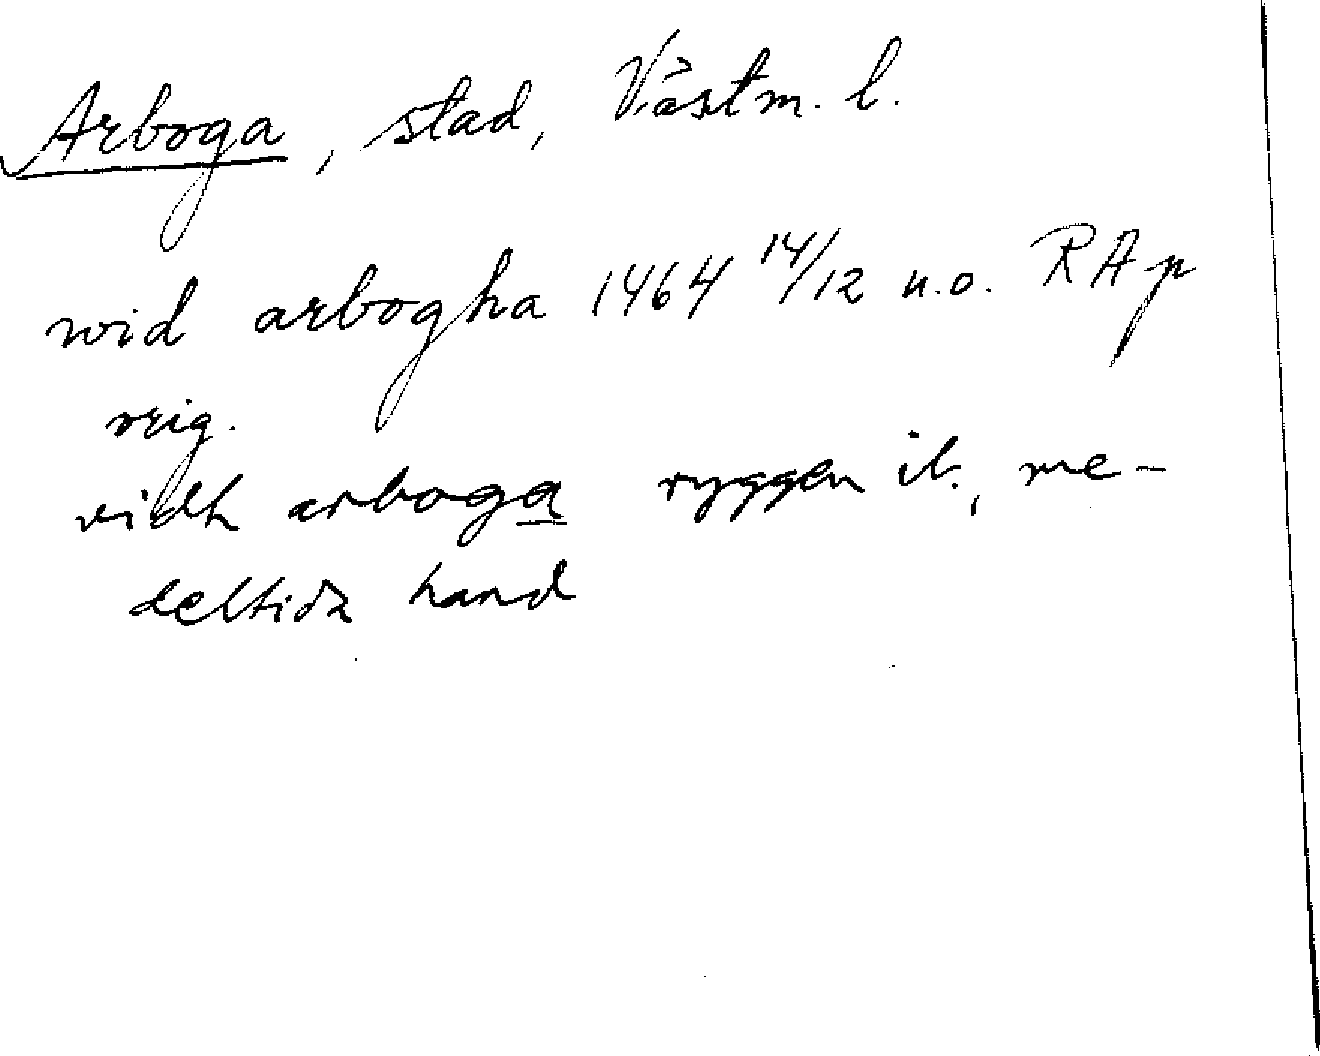 Arboga, stad, Västm. l.
wid arbogha 1464 14/12 u.o. RAp
orig.
vidh arboga ryggen ib., me-
deltida hand